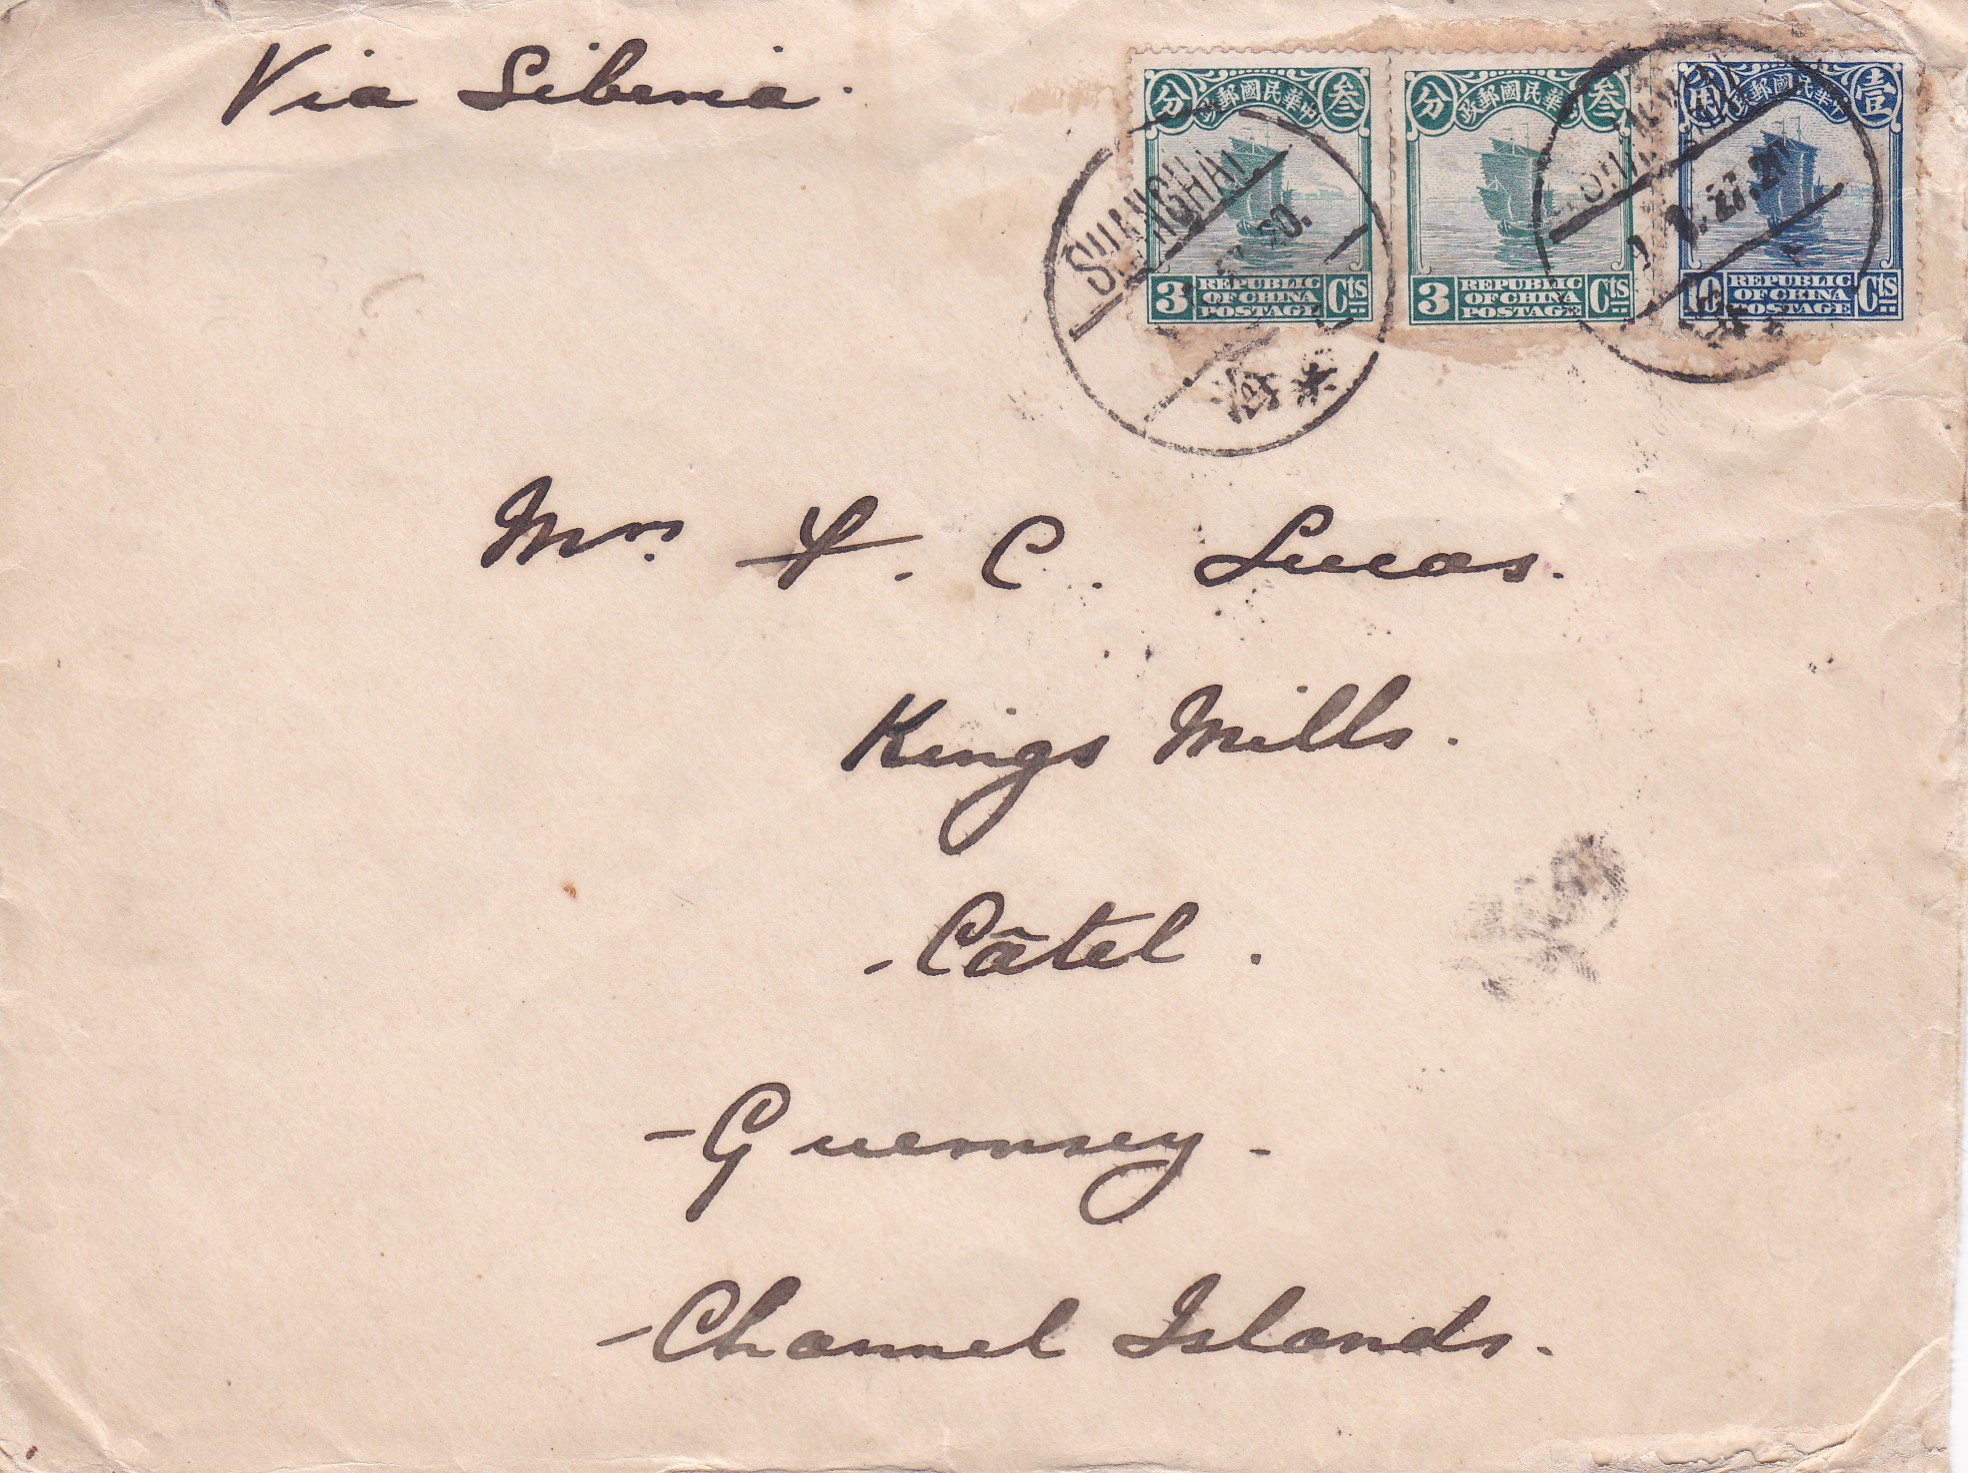 Via Siberia.
分 政郵國民華中 叁
3 REPUBLIC OF CHINA POSTAGE Cts
分 政郵國民華中 叁
3 REPUBLIC OF CHINA POSTAGE Cts
角 政郵國民華中 壹
10 REPUBLIC OF CHINA POSTAGE Cts
SHANGHAI
SHANGHAI
27.20
Mrs. C. Lucas.
Kings Mills.
- Câtel.
- Guernsey -
- Channel Islands.